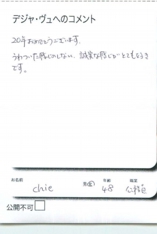 デジャ・ヴュへのコメント
20年おめでとうございます。
うわついた感じのしない、誠実な感じがとても好き
です。
お名前 chie 年齢 48 職業
公開不可